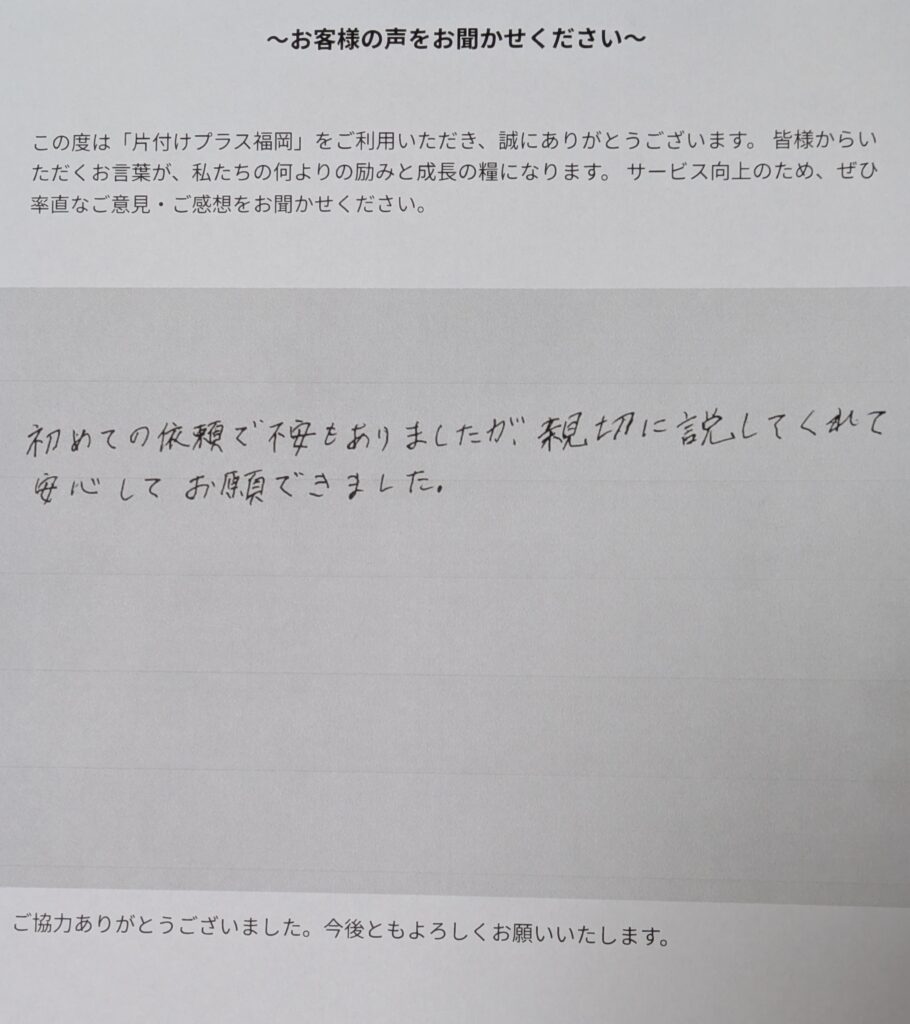 ～お客様の声をお聞かせください～
この度は「片付けプラス福岡」をご利用いただき、誠にありがとうございます。 皆様からい
ただくお言葉が、私たちの何よりの励みと成長の糧になります。 サービス向上のため、ぜひ
率直なご意見・ご感想をお聞かせください。
初めての依頼で不安もありましたが、親切に説してくれて
安心してお願できました。
ご協力ありがとうございました。今後ともよろしくお願いいたします。